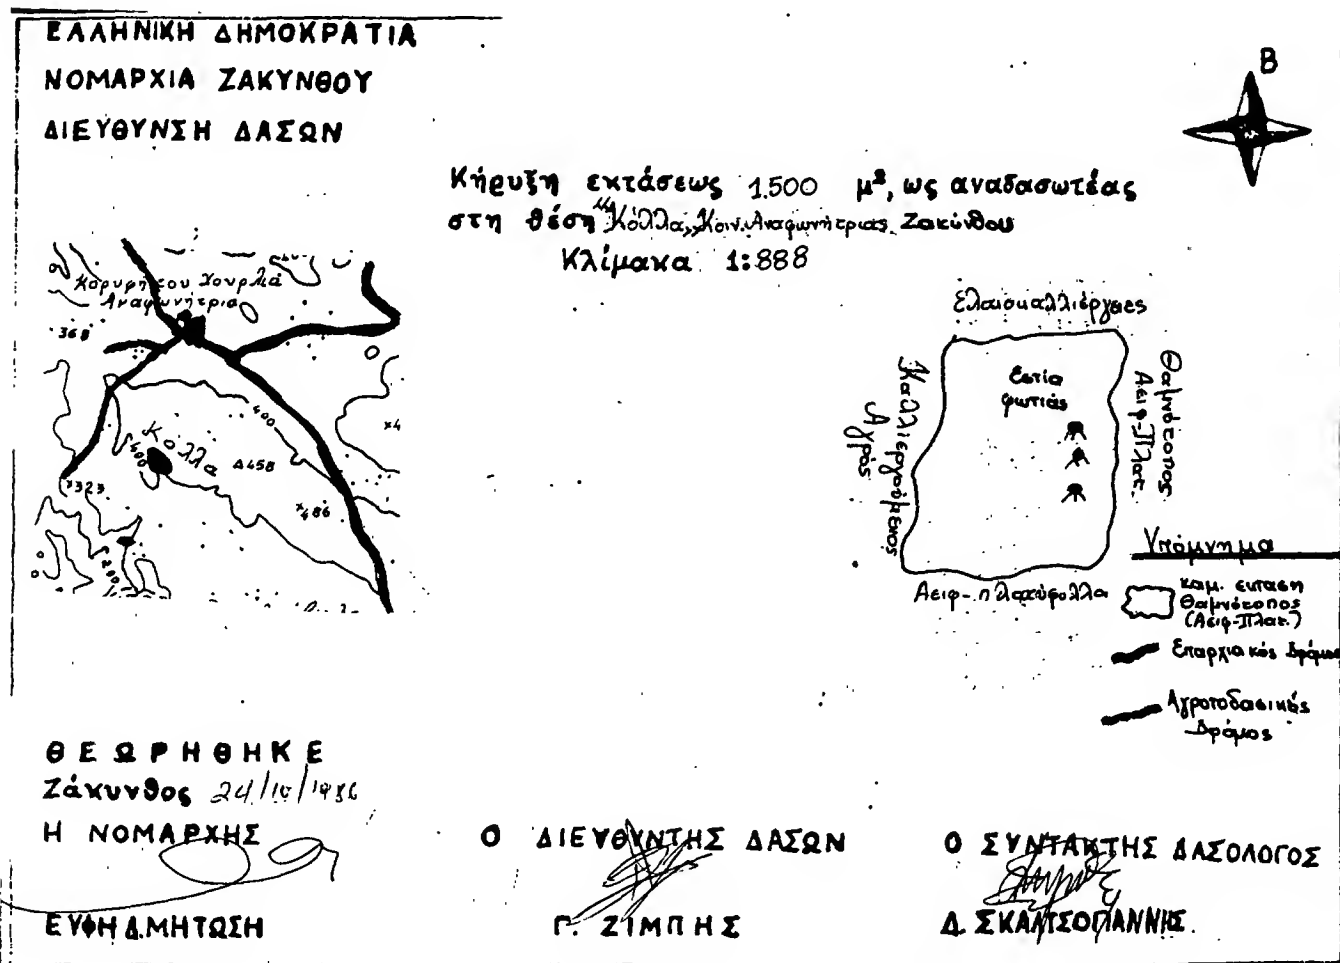 ΕΛΛΗΝΙΚΗ ΔΗΜΟΚΡΑΤΙΑ
ΝΟΜΑΡΧΙΑ ΖΑΚΥΝΘΟΥ
ΔΙΕΥΘΥΝΣΗ ΔΑΣΩΝ
Β
Κήρυξη εκτάσεως 1.500 μ², ως αναδασωτέας
στη θέση "Κόλλα", Κοιν. Αναφωνήτριας Ζακύνθου
Κλίμακα 1:888
Κορυφή του Χουρλιά
Αναφωνήτρια
368
400
x4
Κόλλα
400
Δ458
x323
x486
200
Ελαιοκαλλιέργειες
Εστία
φωτιάς
Καλλιεργούμενος
Αγρός
Θαμνότοπος
Αειφ-Πλατ.
Αειφ-πλατύφολλα
Υπόμνημα
καμ. εκταση
Θαμνότοπος
(Αειφ-Πλατ.)
Επαρχιακός Δρόμος
Αγροτοδασικός
Δρόμος
ΘΕΩΡΗΘΗΚΕ
Ζάκυνθος 24/10/1986
Η ΝΟΜΑΡΧΗΣ
ΕΥΦΗ Δ. ΜΗΤΩΣΗ
Ο ΔΙΕΥΘΥΝΤΗΣ ΔΑΣΩΝ
Γ. ΖΙΜΠΗΣ
Ο ΣΥΝΤΑΚΤΗΣ ΔΑΣΟΛΟΓΟΣ
Δ. ΣΚΑΛΤΣΟΓΙΑΝΝΗΣ